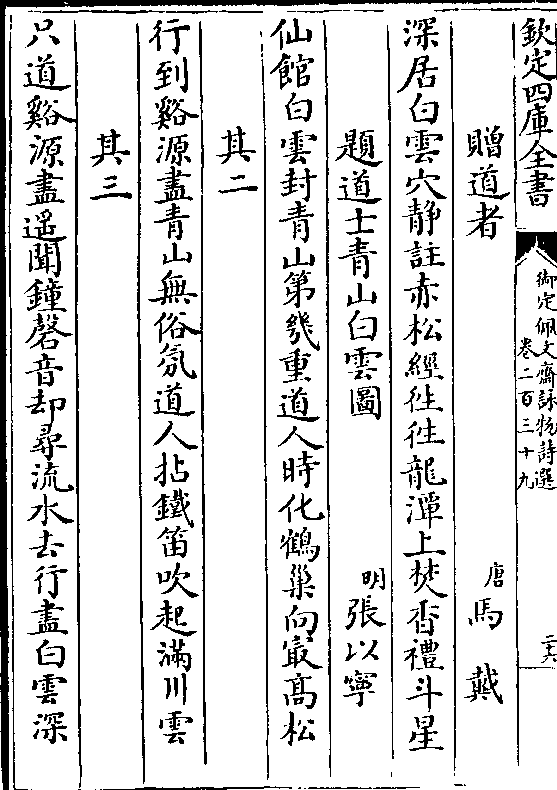 欽定四庫全書
御定佩文齋詠物詩選
卷二百三十九
二六
贈道者
唐馬戴
深居白雲穴静註赤松經往往龍潭上焚香禮斗星
題道士青山白雲圖
明張以寧
仙館白雲封青山第幾重道人時化鶴巢向最高松
其二
行到谿源盡青山無俗氛道人拈鐵笛吹起滿川雲
其三
只道谿源盡遥聞鐘磬音却尋流水去行盡白雲深